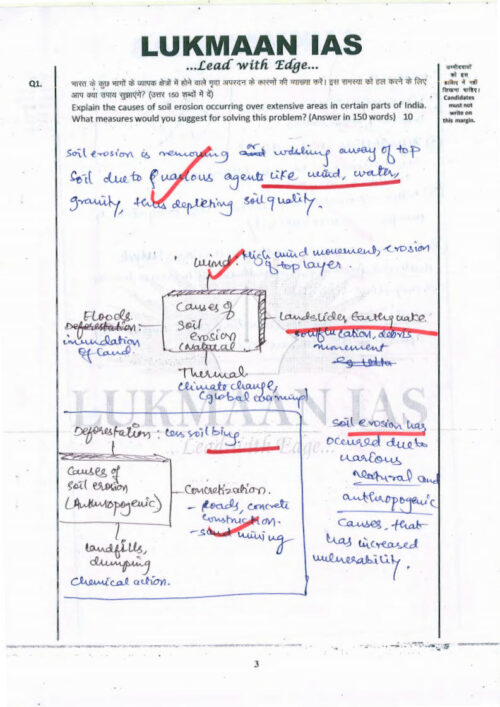 LUKMAAN IAS
...Lead with Edge...
Q1.
भारत के कुछ भागों के व्यापक क्षेत्रों में होने वाले मृदा अपरदन के कारणों की व्याख्या करें। इस समस्या को हल करने के लिए
आप क्या उपाय सुझाएंगे? (उत्तर 150 शब्दों में दें)
Explain the causes of soil erosion occurring over extensive areas in certain parts of India.
What measures would you suggest for solving this problem? (Answer in 150 words) 10
उम्मीदवारों
को इस
हाशिए में नहीं
लिखना चाहिए।
Candidates
must not
write on
this margin.
soil erosion is removing or washing away of top
soil due to various agents like wind, water,
gravity, thus depleting soil quality.
wind: High wind movement, erosion
of top layer.
Causes of
soil
erosion
Floods
Deforestation:
inundation
of land.
Landslides, Earthquake.
debris
movement
Thermal
climate change,
(global warming)
LUKMAAN IAS
...Lead with Edge...
Deforestation: less soil bing
Causes of
soil erosion
(Anthropogenic)
Concretization.
- Roads, concrete
construction.
- sand mining
Landfills,
dumping
chemical action.
soil erosion has
occured due to
various
natural and
anthropogenic
causes, that
has increased
vulnerability.
3